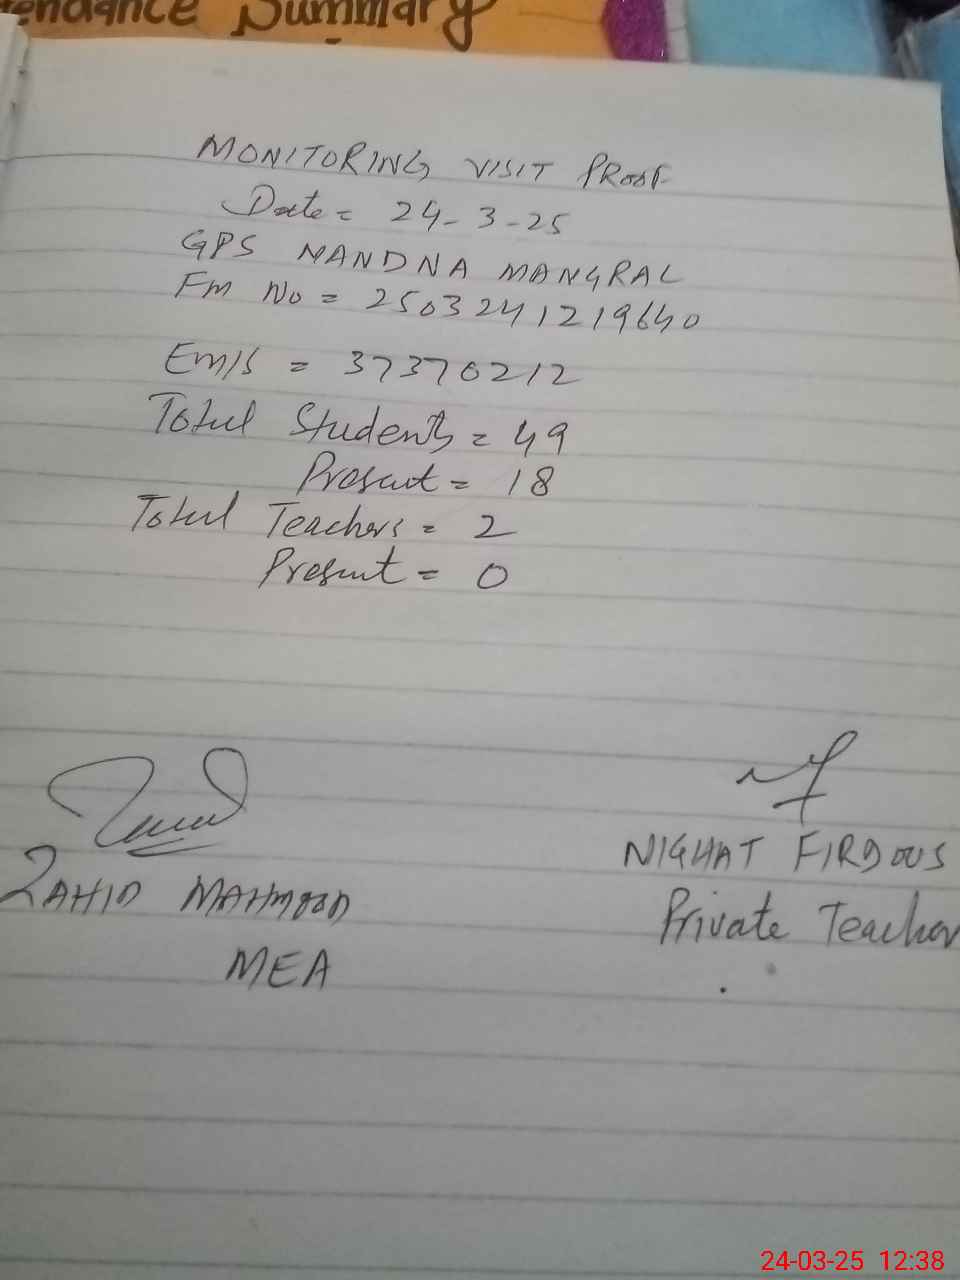 tendance Summary
MONITORING VISIT PROOF
Date = 24-3-25
GPS NANDNA MANGRAL
Fm No = 2503241219640
Emis = 37370212
Total Students = 49
Present = 18
Total Teachers = 2
Present = 0
ZAHID MAHMOOD
MEA
NIGHAT FIRDOUS
Private Teacher
24-03-25 12:38